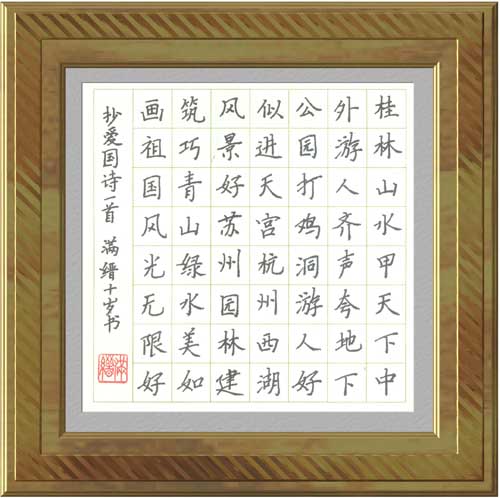 桂林山水甲天下中
外游人齐声夸地下
公园打鸡洞游人好
似进天宫杭州西湖
风景好苏州园林建
筑巧青山绿水美如
画祖国风光无限好
抄爱国诗一首 满缙十岁书